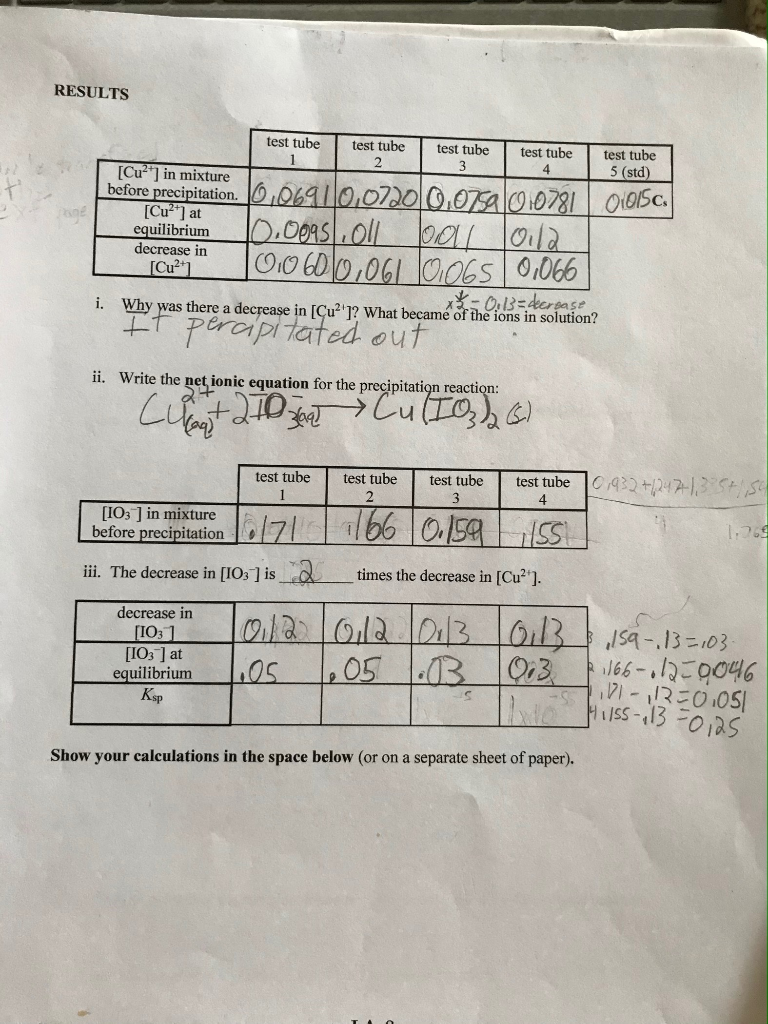 RESULTS
test tube 1 test tube 2 test tube 3 test tube 4 test tube 5 (std)
[Cu²⁺] in mixture before precipitation. 0.0691 0.0720 0.0759 0.0781 0.015 C.
[Cu²⁺] at equilibrium 0.0095 .011 0.011 0.12
decrease in [Cu²⁺] 0.060 0.061 0.065 0.066
= 0.13 = decrease
i. Why was there a decrease in [Cu²⁺]? What became of the ions in solution?
IT percipitated out
ii. Write the net ionic equation for the precipitation reaction:
Cu²⁺(aq) + 2IO₃⁻(aq) → Cu(IO₃)₂ (s)
test tube 1 test tube 2 test tube 3 test tube 4
[IO₃⁻] in mixture before precipitation .171 .166 0.159 .155
iii. The decrease in [IO₃⁻] is 2 times the decrease in [Cu²⁺].
decrease in [IO₃⁻] 0.12 0.12 0.13 0.13
[IO₃⁻] at equilibrium .05 .05 .03 0.3
Ksp
3 .159-.13=.03
2 .166-.12=0.046
1 .171-.12=0.051
4 .155-.13=0.25
Show your calculations in the space below (or on a separate sheet of paper).